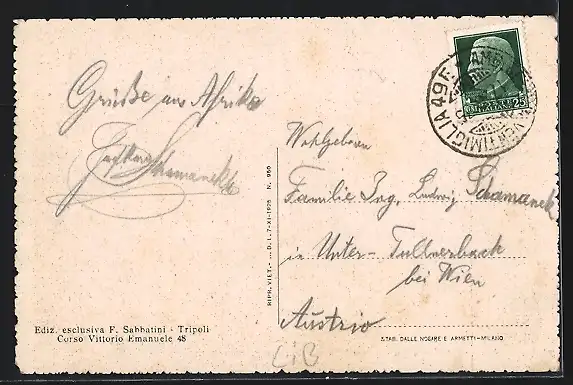 Grüße aus Afrika
Schamanek
Wohlgeboren
Familie Ing. Ludwig Schamanek
in Unter-Tullnerbach
bei Wien
Austria
Ediz. esclusiva F. Sabbatini - Tripoli
Corso Vittorio Emanuele 48
RIPR. VIET. - ... D. I. 7-XI-1928 N. 960
STAB. DALLE NOGARE E ARMETTI - MILANO
VENTIMIGLIA 49
25
LiB